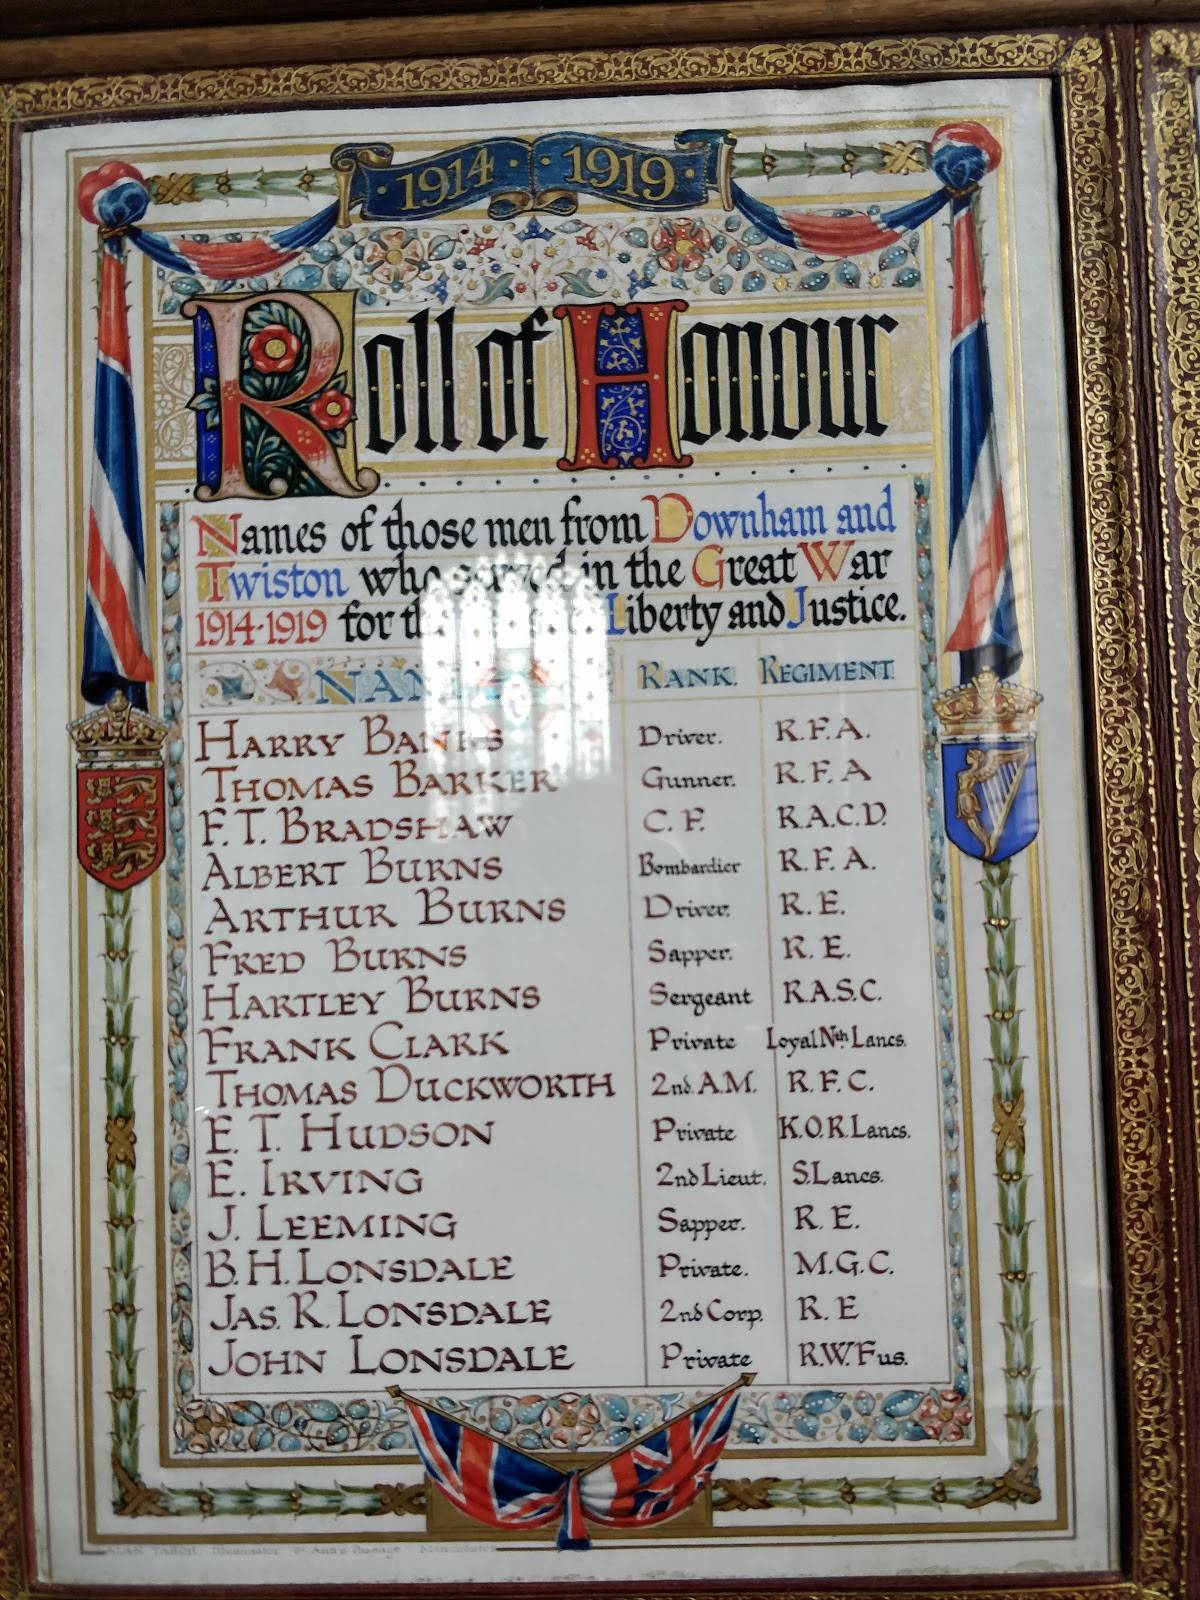 1914 · 1919
Roll of Honour
Names of those men from Downham and
Twiston who served in the Great War
1914-1919 for Liberty and Justice.
RANK. REGIMENT.
HARRY BANKS Driver. R.F.A.
THOMAS BARKER Gunner. R.F.A
F.T. BRADSHAW C.F. R.A.C.D.
ALBERT BURNS Bombardier R.F.A.
ARTHUR BURNS Driver. R.E.
FRED BURNS Sapper. R.E.
HARTLEY BURNS Sergeant R.A.S.C.
FRANK CLARK Private Loyal Nth Lancs.
THOMAS DUCKWORTH 2nd. A.M. R.F.C.
E.T. HUDSON Private K.O.R.Lancs.
E. IRVING 2nd Lieut. S.Lancs.
J. LEEMING Sapper. R.E.
B.H. LONSDALE Private. M.G.C.
JAS. R. LONSDALE 2nd Corp. R.E
JOHN LONSDALE Private R.W.Fus.
Illuminator Manchester